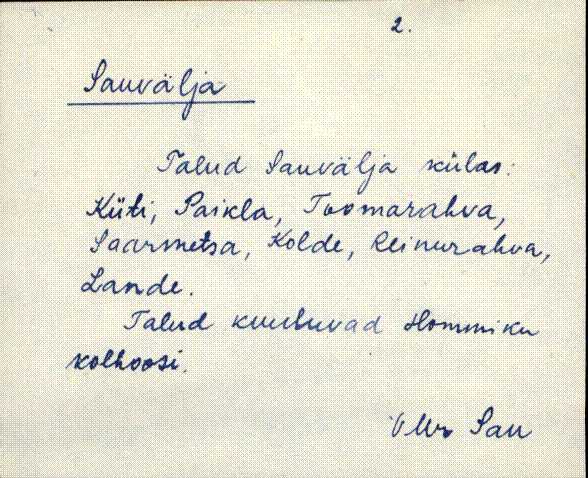 2.
Sauvälja
Talud Sauvälja külas:
Küti, Paikla, Toomarahva,
Saarmetsa, Kolde, Reinurahva,
Lande.
Talud kuuluvad Hommiku
kolhoosi.
Sau